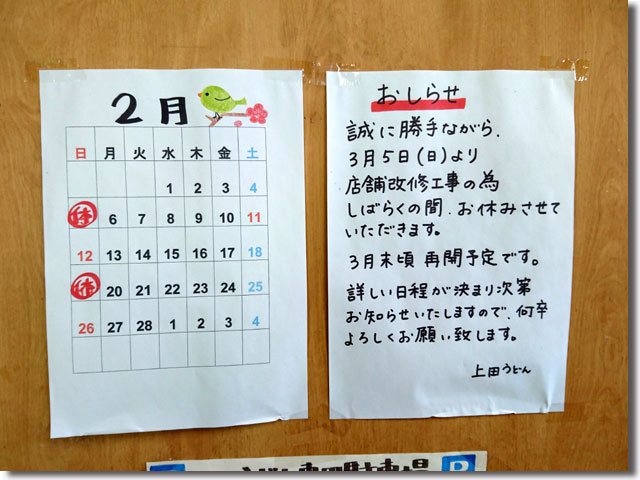 2月
日 月 火 水 木 金 土
1 2 3 4
休 6 7 8 9 10 11
12 13 14 15 16 17 18
休 20 21 22 23 24 25
26 27 28 1 2 3 4
おしらせ
誠に勝手ながら、
3月5日(日)より
店舗改修工事の為
しばらくの間、お休みさせて
いただきます。
3月末頃 再開予定です。
詳しい日程が決まり次第
お知らせいたしますので、何卒
よろしくお願い致します。
上田うどん
駐車場 P